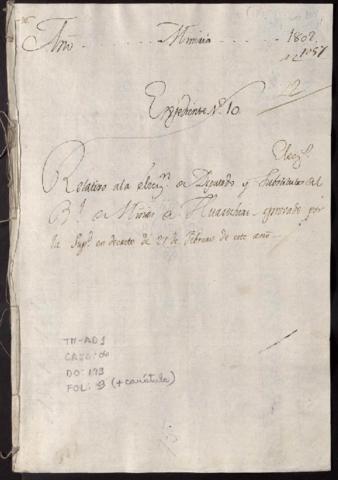 Año Mineria 1802
12
Expediente N.º 10
Elecc.n
Relativo a la elecc.n de Diputado y Substitutos del
R.l de Minas de Huarochiri aprovado por
la Sup.d en decreto de 21 de Febrero de este año
TM-AD1
CAJA: 00
DO: 193
FOL: 9 (+ carátula)